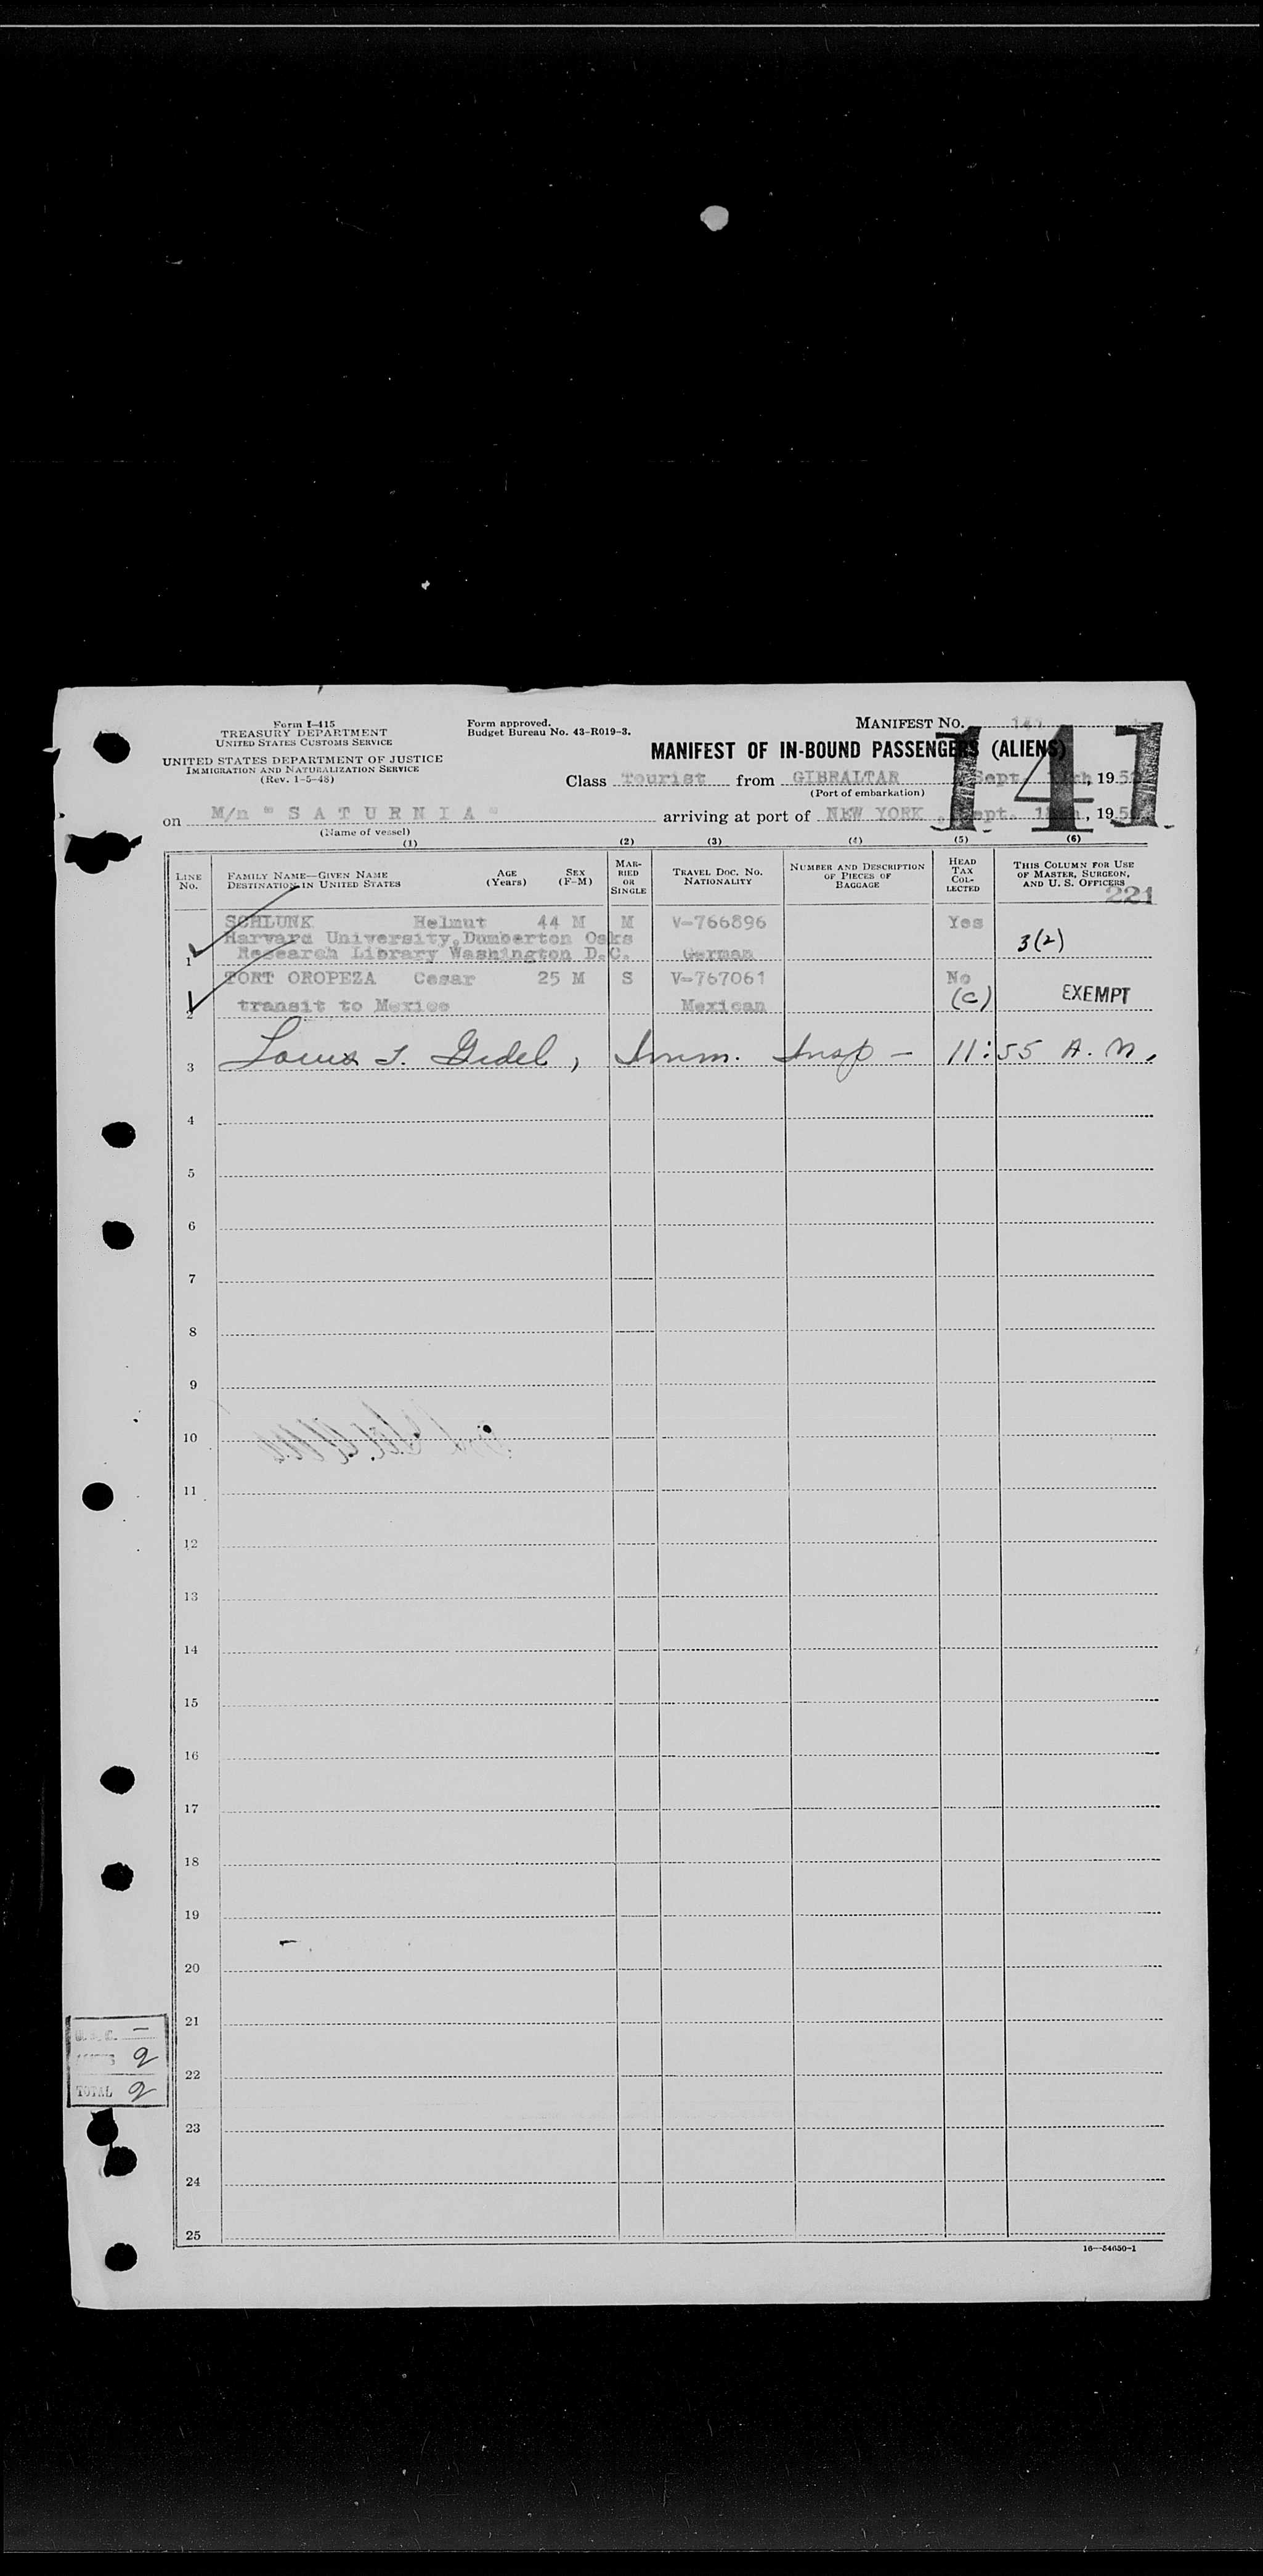 Form I-415
TREASURY DEPARTMENT
UNITED STATES CUSTOMS SERVICE
UNITED STATES DEPARTMENT OF JUSTICE
IMMIGRATION AND NATURALIZATION SERVICE
(Rev. 1-5-48)
Form approved.
Budget Bureau No. 43-R019-3.
MANIFEST NO. 141
141
MANIFEST OF IN-BOUND PASSENGERS (ALIENS)
Class Tourist from GIBRALTAR Sept. , 19
(Port of embarkation)
on M/n "S A T U R N I A" arriving at port of NEW YORK , Sept. , 19
(Name of vessel)
(1) (2) (3) (4) (5) (6)
LINE No.
FAMILY NAME—GIVEN NAME
DESTINATION IN UNITED STATES
AGE (Years)
SEX (F-M)
MARRIED OR SINGLE
TRAVEL DOC. NO. NATIONALITY
NUMBER AND DESCRIPTION OF PIECES OF BAGGAGE
HEAD TAX COLLECTED
THIS COLUMN FOR USE OF MASTER, SURGEON, AND U. S. OFFICERS
221
SCHLUNK Helmut 44 M M V-766896 Yes
Harvard University, Dumberton Osks 3(2)
1 Research Library Washington D.C. German
TORT OROPEZA Cesar 25 M S V-767061 No
2 transit to Mexico Mexican (c) EXEMPT
3 Louis J. Gidel, Imm. Insp - 11:55 A.M.
4
5
6
7
8
9
10
11
12
13
14
15
16
17
18
19
20
21
22
23
24
25
U.S.C. —
ALIENS 2
TOTAL 2
16—54050-1